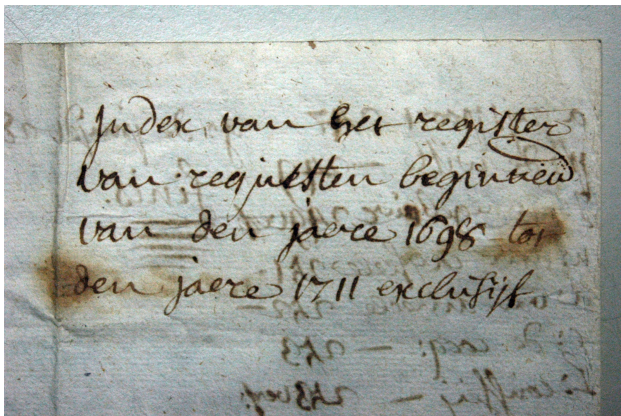 Index van het register
van requesten beginnend
van den jaere 1698 tot
den jaere 1711 exclusijf